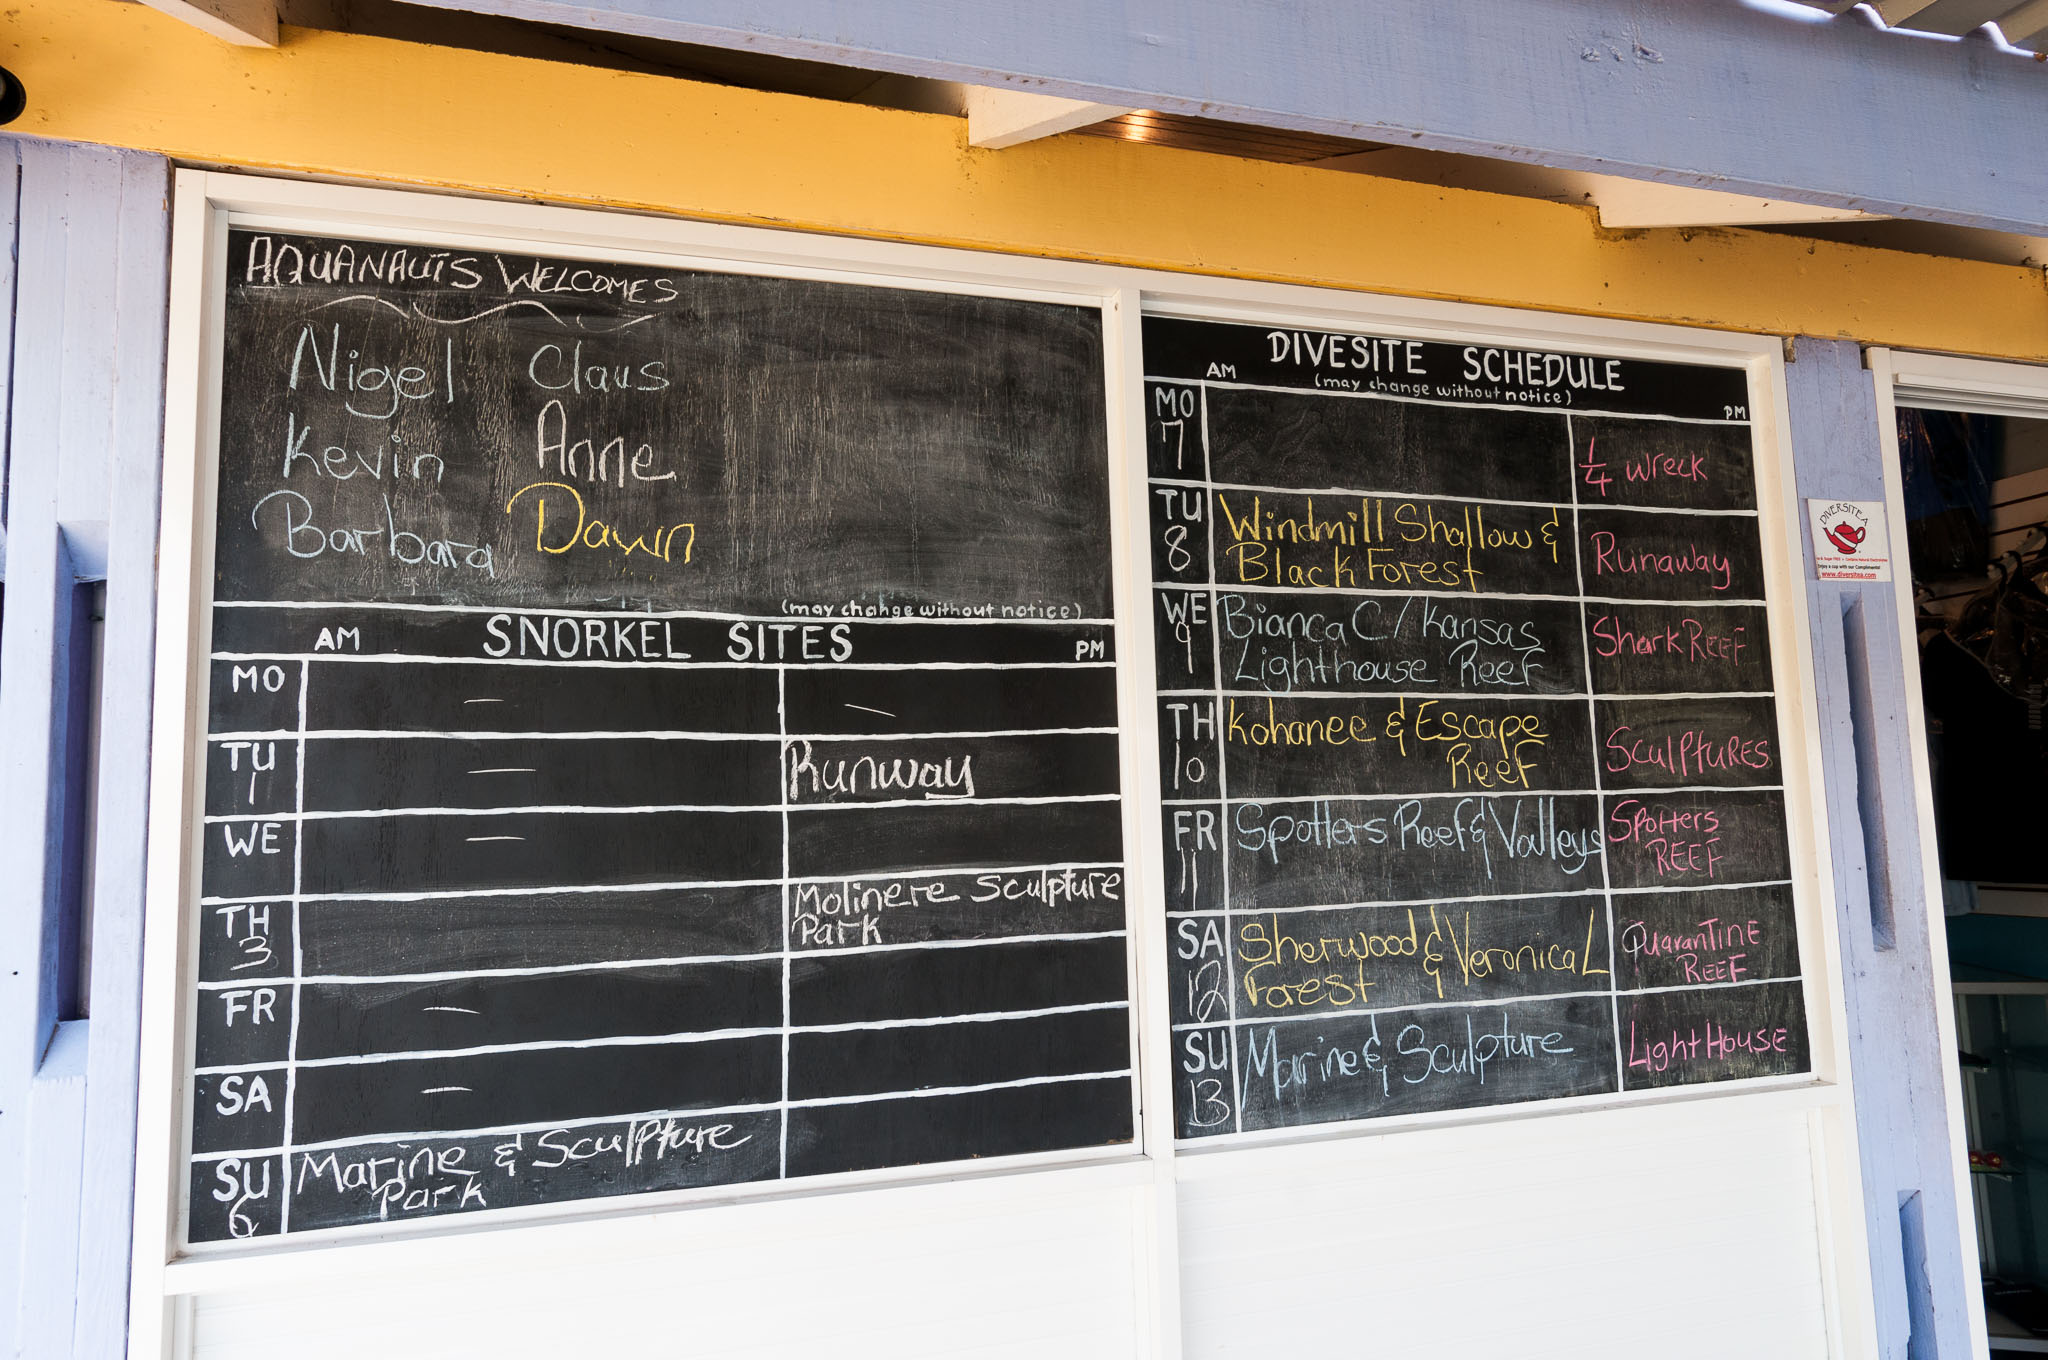 AQUANAUTS WELCOMES
Nigel Claus
Kevin Anne
Barbara Dawn
(may change without notice)
AM SNORKEL SITES PM
MO — —
TU — Runway
1
WE —
TH Molinere Sculpture
3 Park
FR —
SA —
SU Marine & Sculpture
6 Park
DIVESITE SCHEDULE
AM (may change without notice) PM
MO
7 1/4 wreck
TU Windmill Shallow &
8 Black Forest Runaway
WE Bianca C / Kansas Shark REEF
9 Lighthouse Reef
TH Kohanee & Escape SculptURES
10 Reef
FR Spotters Reef & Valleys Spotters
11 REEF
SA Sherwood & Veronica L QuaranTine
12 Forest REEF
SU Marine & Sculpture LightHouse
13
DIVERSITEA
Enjoy a cup with our Compliments!
www.diversitea.com